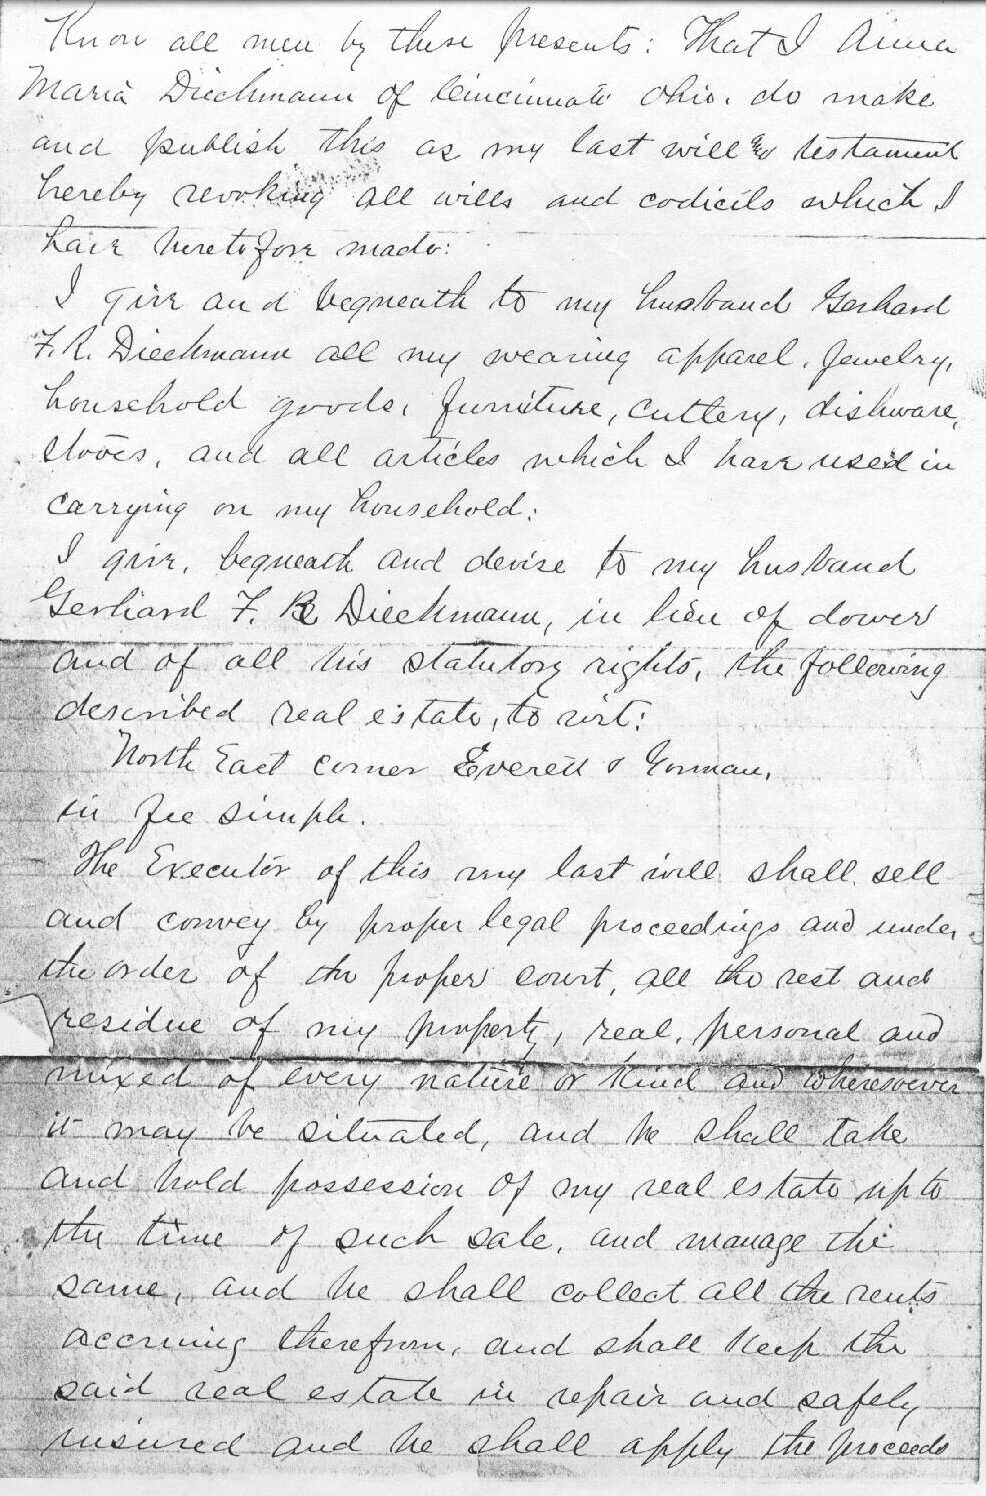 Know all men by these presents: That I Anna
Maria Dieckmann of Cincinnati Ohio. do make
and publish this as my last will and testament
hereby revoking all wills and codicils which I
have heretofore made:
I give and bequeath to my husband Gerhard
F. R. Dieckmann all my wearing apparel, Jewelry,
household goods, furniture, cuttery, dishware,
stoves, and all articles which I have used in
carrying on my household:
I give, bequeath and devise to my husband
Gerhard F. R Dieckmann, in lieu of dower
and of all his statutory rights, the following
described real estate, to wit:
North East corner Everett & Gorman,
in fee simple.
The Executor of this my last will shall sell
and convey by proper legal proceedings and under
the order of the proper court, all the rest and
residue of my property, real, personal and
mixed of every nature or kind and wheresoever
it may be situated, and he shall take
and hold possession of my real estate up to
the time of such sale, and manage the
same, and he shall collect all the rents
accruing therefrom, and shall keep the
said real estate in repair and safely
insured and he shall apply the proceeds